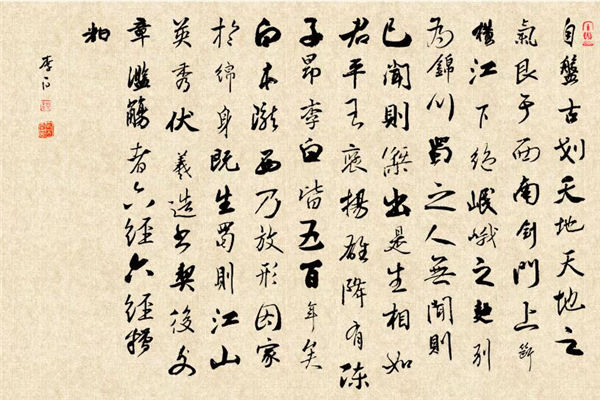 自盤古划天地天地之
氣艮于西南剑門上斷
横江下絶岷峨之麯别
為錦川蜀之人無聞則
已聞則傑出是生相如
君平王褒揚雄降有陳
子昂李白皆五百年矣
白本隴西乃放形因家
於綿身既生蜀則江山
英秀伏羲造书契後文
章濫觴者六經六經糟
粕